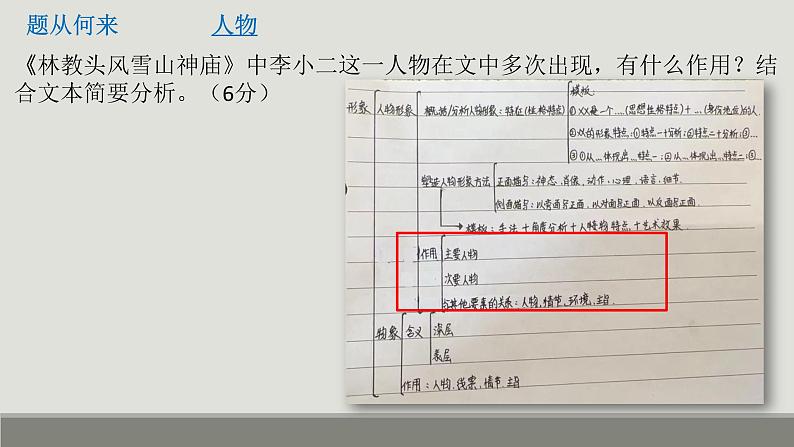 题从何来
人物
《林教头风雪山神庙》中李小二这一人物在文中多次出现，有什么作用？结
合文本简要分析。（6分）
模板：
形象 人物形象 概括/分析人物形象：特征(性格特点) ①XX是一个……(思想性格特点)+…(身份地位)的人.
②XX的形象特点：①特点一+分析；②特点二+分析；③…
③①从…体现出…特点一；②从…体现出…特点二；③…
塑造人物形象方法 正面描写：神态、肖像、动作、心理、语言、细节.
侧面描写：以旁面写正面，以对面写正面，以反面写正面.
模板：手法+角度分析+人物特点+艺术效果.
作用 主要人物
次要人物
与其他要素的关系：人物,情节,环境,主旨.
物象 含义 深层
表层
作用：人物,线索,情节,主旨